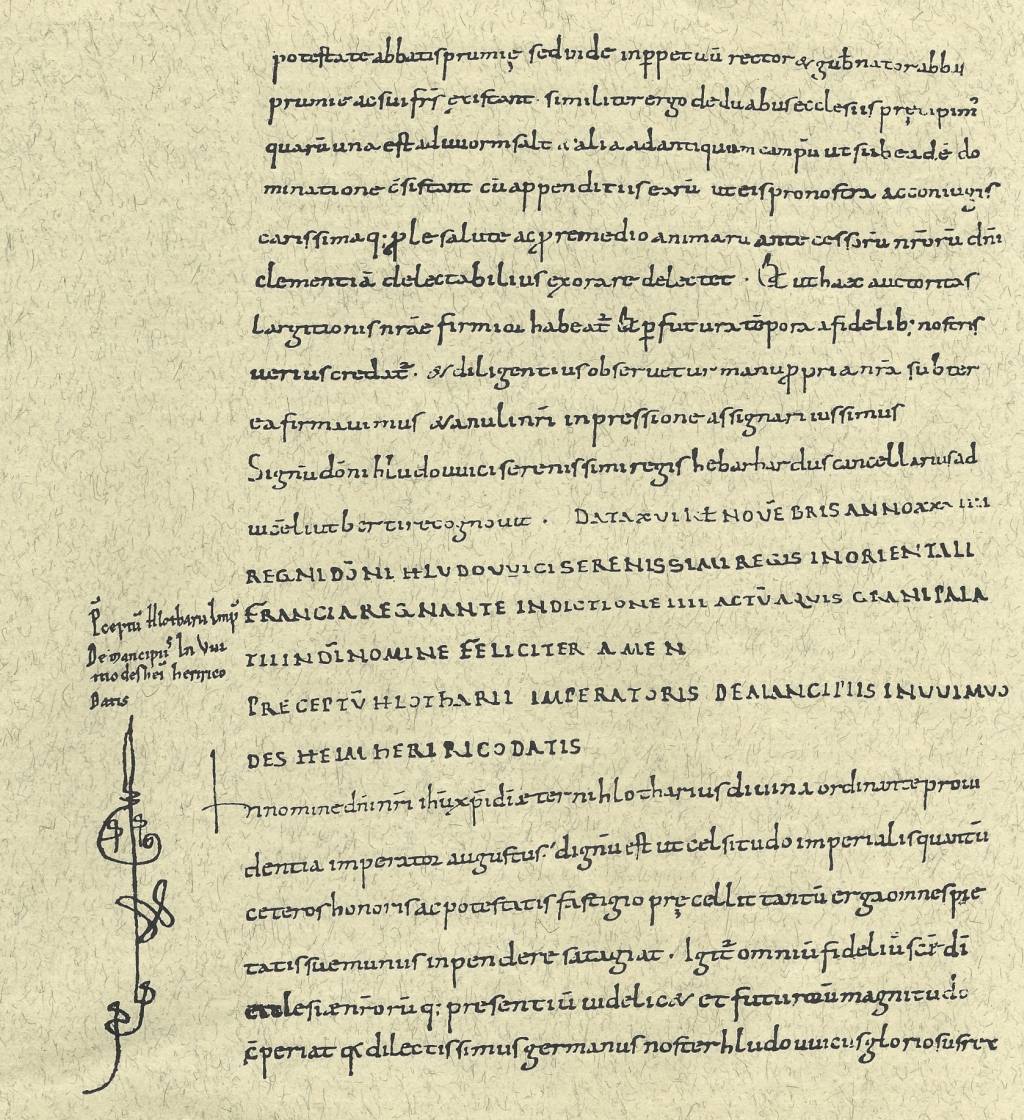 potestate abbatis prumię sed uide inp̱petuū rector & gub̄nator abb̄ti
prumie ac sui fr̄s ęxistant. similiter ergo de duabus ecclesiis pręcipim᷒
quarū una est ad uuormsalt & alia ad antiquum campū ut sub eadē do
minatione c̄sistant cū appenditiis earū ut eis pro nostra ac coniugis
carissimaq; ꝓle salute ac ꝓ remedio animarū antecessorū nr̄orū dn̄i
clementiā delectabilius exorare delectet. Et ut haec auctoritas
largitionis nrāe firmior habeat᷒ Et p̱ futura tēpora a fidelib; nostris
uerius credat᷒. & diligentius obseruetur manu ꝓpria nrā subter
ea firmauimus & anuli nr̄i inpressione assignari iussimus
Signū dōni hludouuici serenissimi regis hebarhardus cancellarius ad
uicē liutberti recognouit. DATA XVI KL NOVĒBRIS ANNO XXXIIII
REGNI DŌNI HLUDOVVICI SERENISSIMI REGIS IN ORIENTALI
FRANCIA REGNANTE INDICTIONE IIII ACTŪ AQUIS GRANI PALA
TII IN DĪ NOMINE FELICITER AMEN
P̄ceptū Hlotharii Imp̄
De mancipiis In Vui
mo des hei heririco
Datis
PRECEPTŪ HLOTHARII IMPERATORIS DE MANCIPIIS IN VUIMVO
DES HEIM HERIRICO DATIS
In nomine dn̄i nr̄i ihū xp̄i dī aeterni hlotharius diuina ordinante proui
dentia imperator augustus. dignū est ut celsitudo imperialis quantū
ceteros honoris ac potestatis fastigio pręcellit tantū erga omnes pie
tatis sue munus inpendere satagiat. Igit᷒ omniū fideliū scē dī
ecclesiae nr̄orūq; presentiū uidelic& et futurorū magnitudo
c̄periat qđ dilectissimus germanus noster hludouuicus gloriosus rex